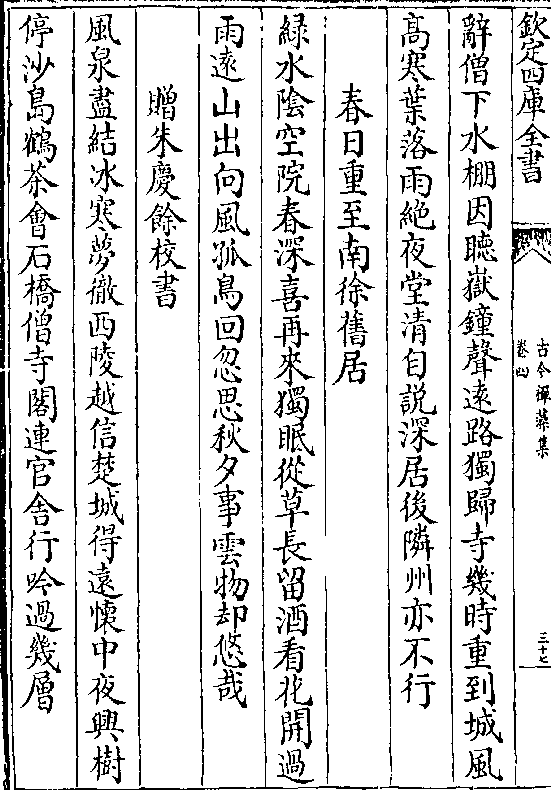 欽定四庫全書
古今禪藻集
卷四
三十七
辭僧下水棚因聽嶽鐘聲遠路獨歸寺幾時重到城風
髙寒葉落雨絶夜堂清自説深居後隣州亦不行
春日重至南徐舊居
緑水陰空院春深喜再來獨眠從草長留酒看花開過
雨遠山出向風孤鳥回忽思秋夕事雲物却悠哉
贈朱慶餘校書
風泉盡結冰寒夢徹西陵越信楚城得遠懷中夜興樹
停沙島鶴茶會石橋僧寺閣連官舎行吟過幾層